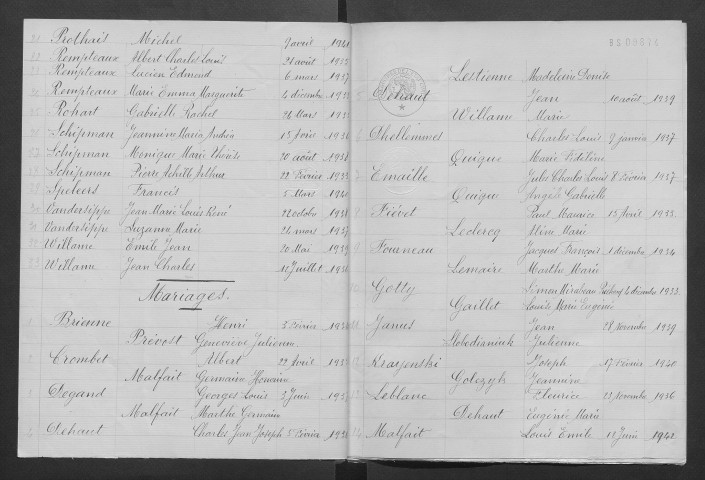 Prothais Michel 9 avril 1941
Rompteaux Albert Charles Louis 21 août 1935
Rompteaux Lucien Edmond 6 mars 1937
Rompteaux Marie Emma Marguerite 4 décembre
Rohart Gabrielle Rachel 26 Mars
Schipman Jeannine Maria Andréa 15
Schipman Monique Marie Thérèse 20 août 1938
Schipman Pierre Achille Arthur 22 Février 1933
Speleers Francis 5 Mars 1940
Vandersippe Jean Marie Louis René 22 octobre 1938
Vandersippe Suzanne Marie 26 mars 1937
Willame Emile Jean 20 Mai 1939
Willame Jean Charles Juillet
Mariages.
1 Brienne Henri 3 Février
Prévost Geneviève Julienne
2 Crombet Albert 22 Avril
Malfait Germaine
3 Degand Georges Louis 3 Juin
Malfait Marthe Germaine
4 Dehaut Charles Jean Joseph 5 Février
Lestienne Madeleine Denise
5 Dehaut Jean 10 août 1939
Willame Marie
6 Charles Louis 9 janvier 1937
Quique Marie
7 Emaille Jules Charles Louis 8 Février 1937
Quique Angèle Gabrielle
8 Fiévet Paul Maurice 15 Avril 1933
Leclercq Marie
9 Fourneau Jacques François 1 décembre 1934
Lemaire Marthe Marie
10 Getty Simon Mirabeau 2 décembre 1933
Gaillet Louise Marie Eugénie
11 Janus Jean 28 Novembre 1939
Julienne
12 Krajenski Joseph 17 Février 1940
Golczyk Jeannine
13 Leblanc Fleurice 23 novembre 1936
Dehaut Eugénie Marie
14 Malfait Louis Emile 12 Juin 1942